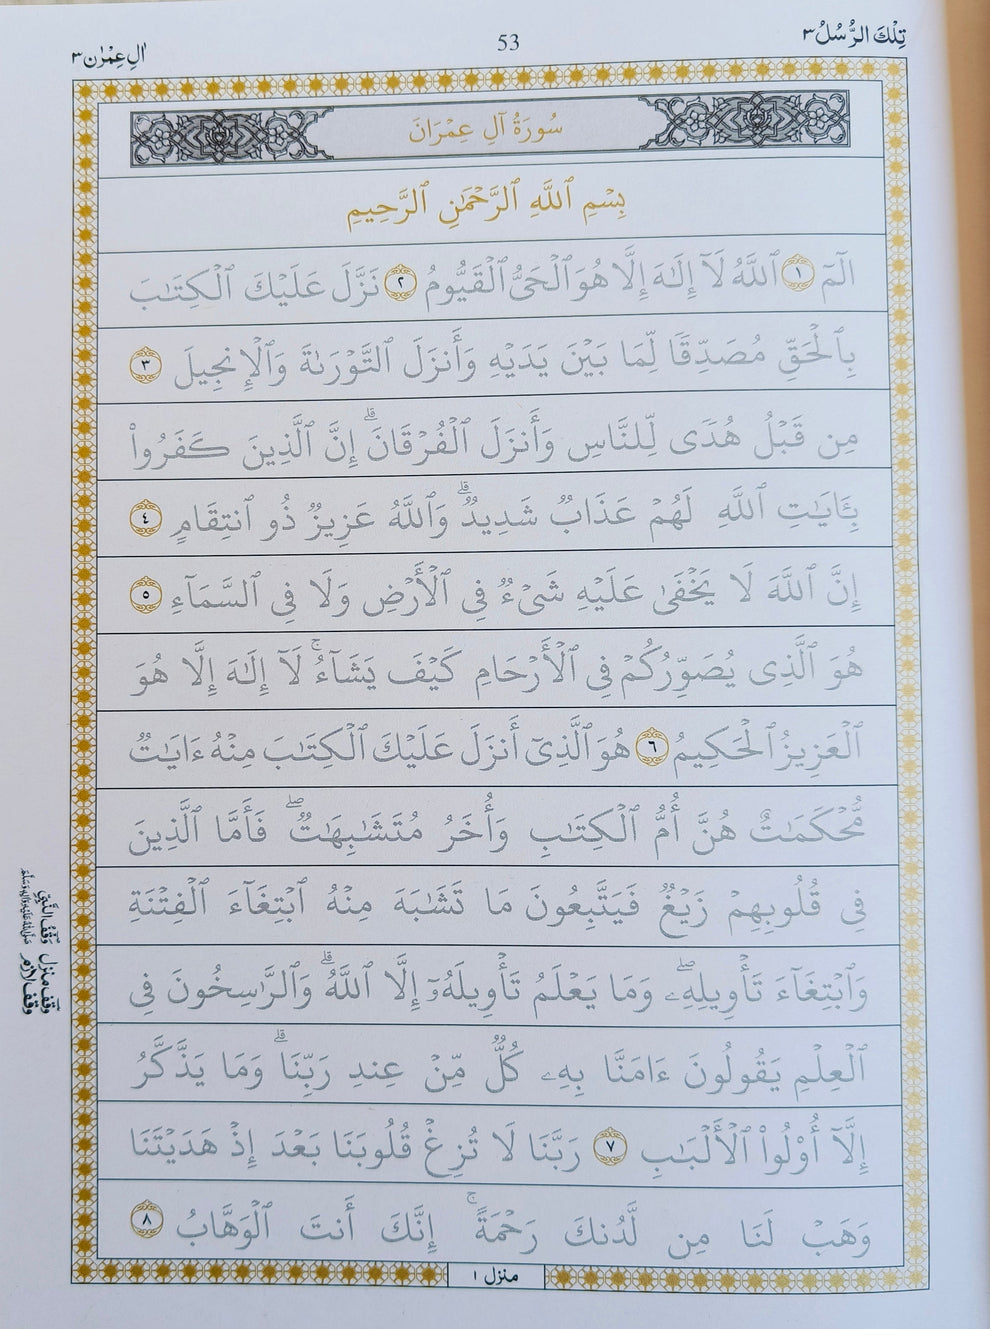 تِلْكَ الرُّسُلُ ٣
53
اٰلِ عِمْرٰن ٣
سُورَةُ آلِ عِمْرَانَ
بِسْمِ ٱللَّهِ ٱلرَّحْمَٰنِ ٱلرَّحِيمِ
الٓمٓ ١ ٱللَّهُ لَآ إِلَٰهَ إِلَّا هُوَ ٱلْحَىُّ ٱلْقَيُّومُ ٢ نَزَّلَ عَلَيْكَ ٱلْكِتَٰبَ
بِٱلْحَقِّ مُصَدِّقًا لِّمَا بَيْنَ يَدَيْهِ وَأَنزَلَ ٱلتَّوْرَىٰةَ وَٱلْإِنجِيلَ ٣
مِن قَبْلُ هُدًى لِّلنَّاسِ وَأَنزَلَ ٱلْفُرْقَانَ ۗ إِنَّ ٱلَّذِينَ كَفَرُوا۟
بِـَٔايَٰتِ ٱللَّهِ لَهُمْ عَذَابٌ شَدِيدٌ ۗ وَٱللَّهُ عَزِيزٌ ذُو ٱنتِقَامٍ ٤
إِنَّ ٱللَّهَ لَا يَخْفَىٰ عَلَيْهِ شَىْءٌ فِى ٱلْأَرْضِ وَلَا فِى ٱلسَّمَآءِ ٥
هُوَ ٱلَّذِى يُصَوِّرُكُمْ فِى ٱلْأَرْحَامِ كَيْفَ يَشَآءُ ۚ لَآ إِلَٰهَ إِلَّا هُوَ
ٱلْعَزِيزُ ٱلْحَكِيمُ ٦ هُوَ ٱلَّذِىٓ أَنزَلَ عَلَيْكَ ٱلْكِتَٰبَ مِنْهُ ءَايَٰتٌ
مُّحْكَمَٰتٌ هُنَّ أُمُّ ٱلْكِتَٰبِ وَأُخَرُ مُتَشَٰبِهَٰتٌ ۖ فَأَمَّا ٱلَّذِينَ
فِى قُلُوبِهِمْ زَيْغٌ فَيَتَّبِعُونَ مَا تَشَٰبَهَ مِنْهُ ٱبْتِغَآءَ ٱلْفِتْنَةِ
وَٱبْتِغَآءَ تَأْوِيلِهِۦ ۖ وَمَا يَعْلَمُ تَأْوِيلَهُۥٓ إِلَّا ٱللَّهُ ۗ وَٱلرَّٰسِخُونَ فِى
ٱلْعِلْمِ يَقُولُونَ ءَامَنَّا بِهِۦ كُلٌّ مِّنْ عِندِ رَبِّنَا ۗ وَمَا يَذَّكَّرُ
إِلَّآ أُو۟لُوا۟ ٱلْأَلْبَٰبِ ٧ رَبَّنَا لَا تُزِغْ قُلُوبَنَا بَعْدَ إِذْ هَدَيْتَنَا
وَهَبْ لَنَا مِن لَّدُنكَ رَحْمَةً ۚ إِنَّكَ أَنتَ ٱلْوَهَّابُ ٨
منزل ١
وقف النبي
وقف منزل
وقف لازم